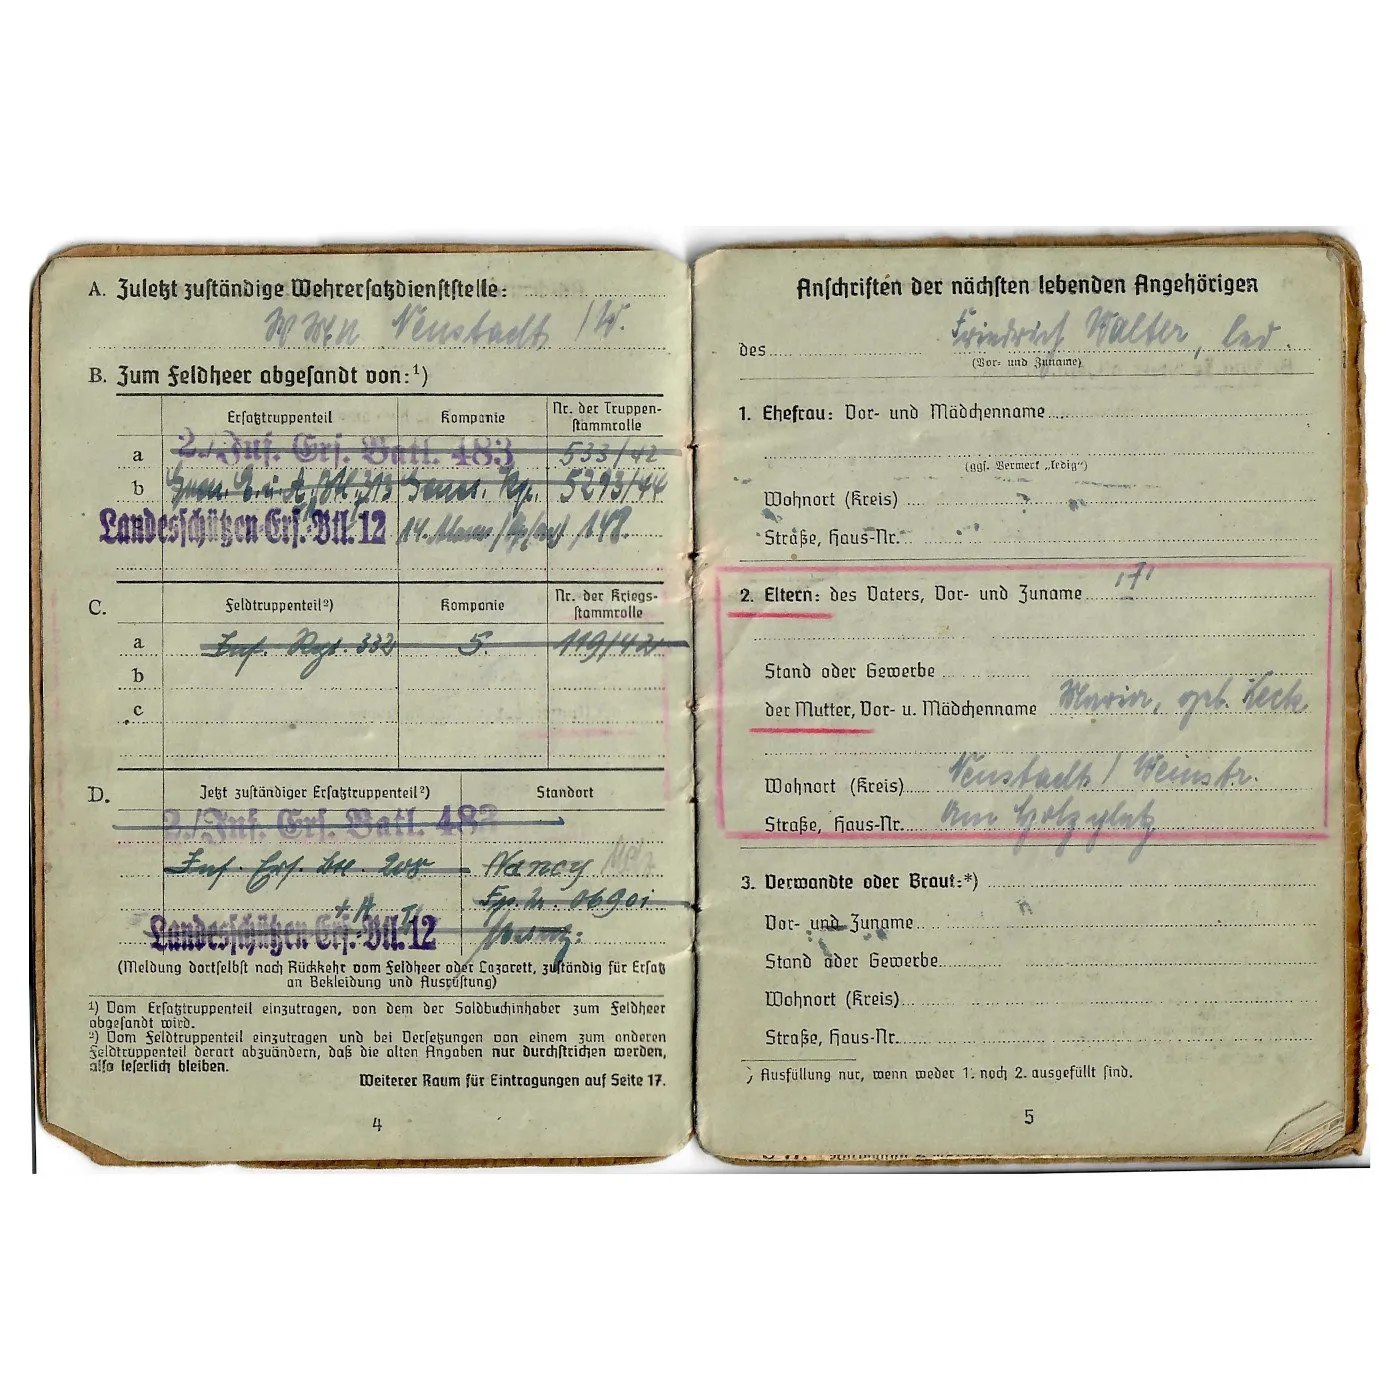 A. Zuletzt zuständige Wehrersatzdienststelle:
Neustadt /W.
B. Zum Feldheer abgesandt von:¹)
Ersatztruppenteil Kompanie Nr. der Truppen-
stammrolle
a 2./Inf. Ers. Batl. 483 533/42
b 5293/44
Landesschützen-Ers.-Btl. 12 14.
C. Feldtruppenteil²) Kompanie Nr. der Kriegs-
stammrolle
a Inf. Rgt. 332 5. 119/42
b
c
D. Jetzt zuständiger Ersatztruppenteil²) Standort
2./Inf. Ers. Batl. 482
Inf. Ers. Btl. 208 Nancy
+ A
Landesschützen-Ers.-Btl. 12
(Meldung dortselbst nach Rückkehr vom Feldheer oder Lazarett, zuständig für Ersatz
an Bekleidung und Ausrüstung)
¹) Vom Ersatztruppenteil einzutragen, von dem der Soldbuchinhaber zum Feldheer
abgesandt wird.
²) Vom Feldtruppenteil einzutragen und bei Versetzungen von einem zum anderen
Feldtruppenteil derart abzuändern, daß die alten Angaben nur durchstrichen werden,
also leserlich bleiben.
Weiterer Raum für Eintragungen auf Seite 17.
4
Anschriften der nächsten lebenden Angehörigen
des Friedrich Walter, led.
(Vor- und Zuname)
1. Ehefrau: Vor- und Mädchenname
(ggf. Vermerk „ledig")
Wohnort (Kreis)
Straße, Haus-Nr.
2. Eltern: des Vaters, Vor- und Zuname
Stand oder Gewerbe
der Mutter, Vor- u. Mädchenname Maria, geb.
Wohnort (Kreis) Neustadt / Weinstr.
Straße, Haus-Nr. Am Holzplatz
3. Verwandte oder Braut:*)
Vor- und Zuname
Stand oder Gewerbe
Wohnort (Kreis)
Straße, Haus-Nr.
*) Ausfüllung nur, wenn weder 1. noch 2. ausgefüllt sind.
5